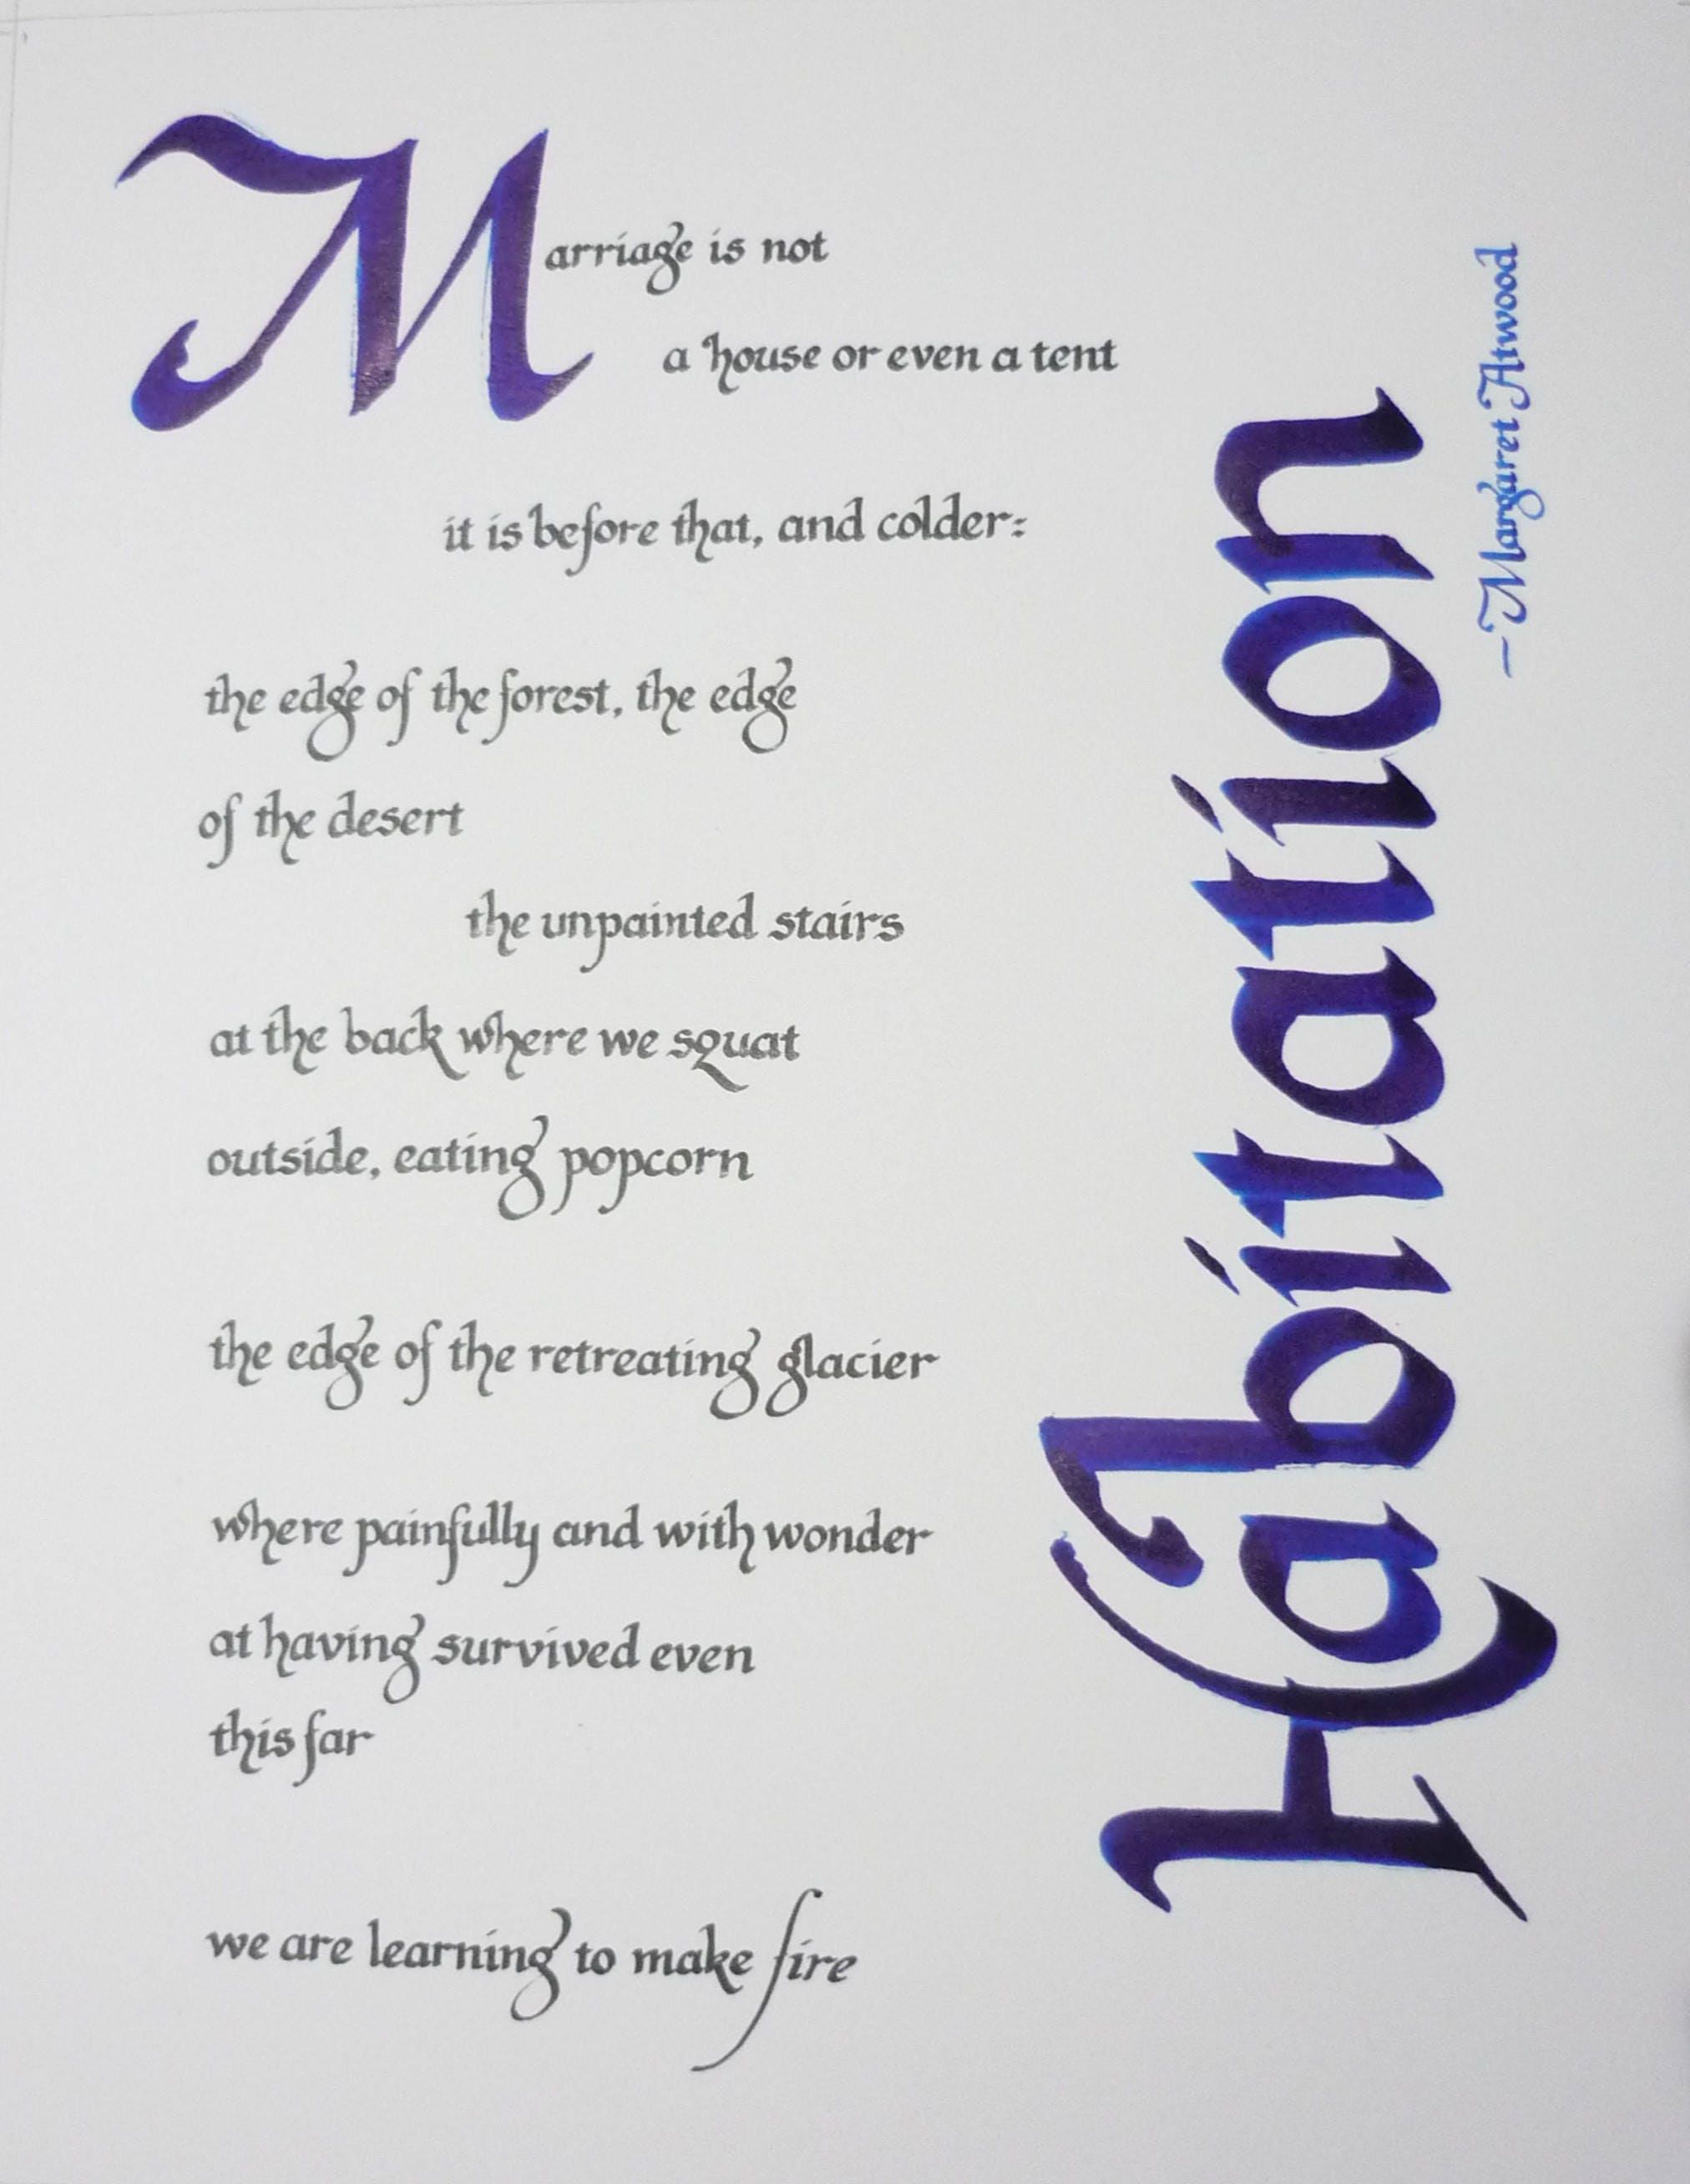 Marriage is not
a house or even a tent
it is before that, and colder:
the edge of the forest, the edge
of the desert
the unpainted stairs
at the back where we squat
outside, eating popcorn
the edge of the retreating glacier
where painfully and with wonder
at having survived even
this far
we are learning to make fire
Habitation
—Margaret Atwood